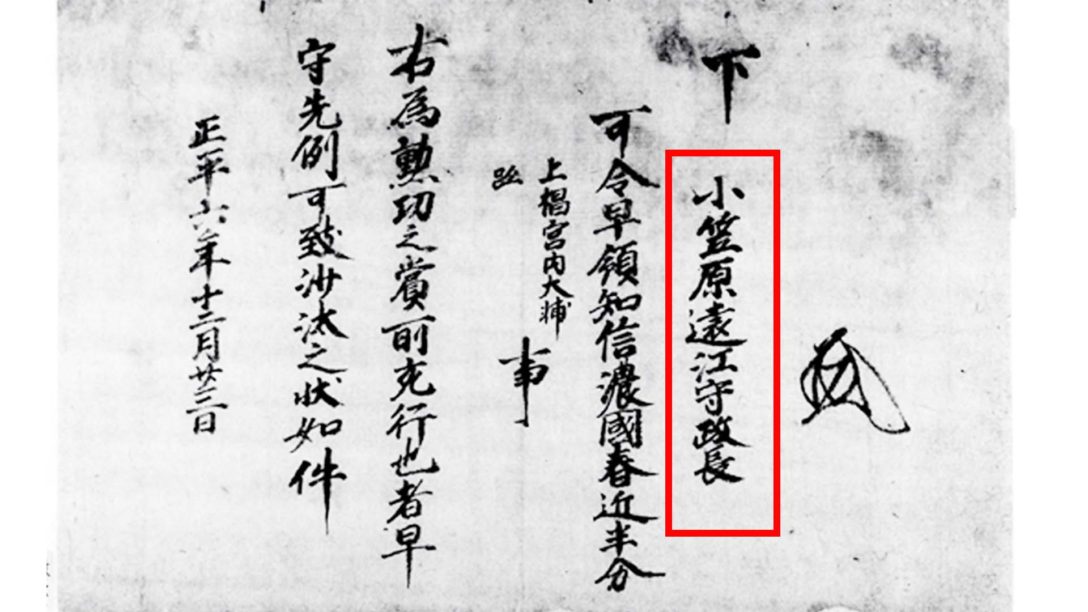 下
小笠原遠江守政長
可令早領知信濃國春近半分
上椙宮内大輔
跡
事
右爲勲功之賞所充行也者早
守先例可致沙汰之状如件
正平六年十二月廿三日